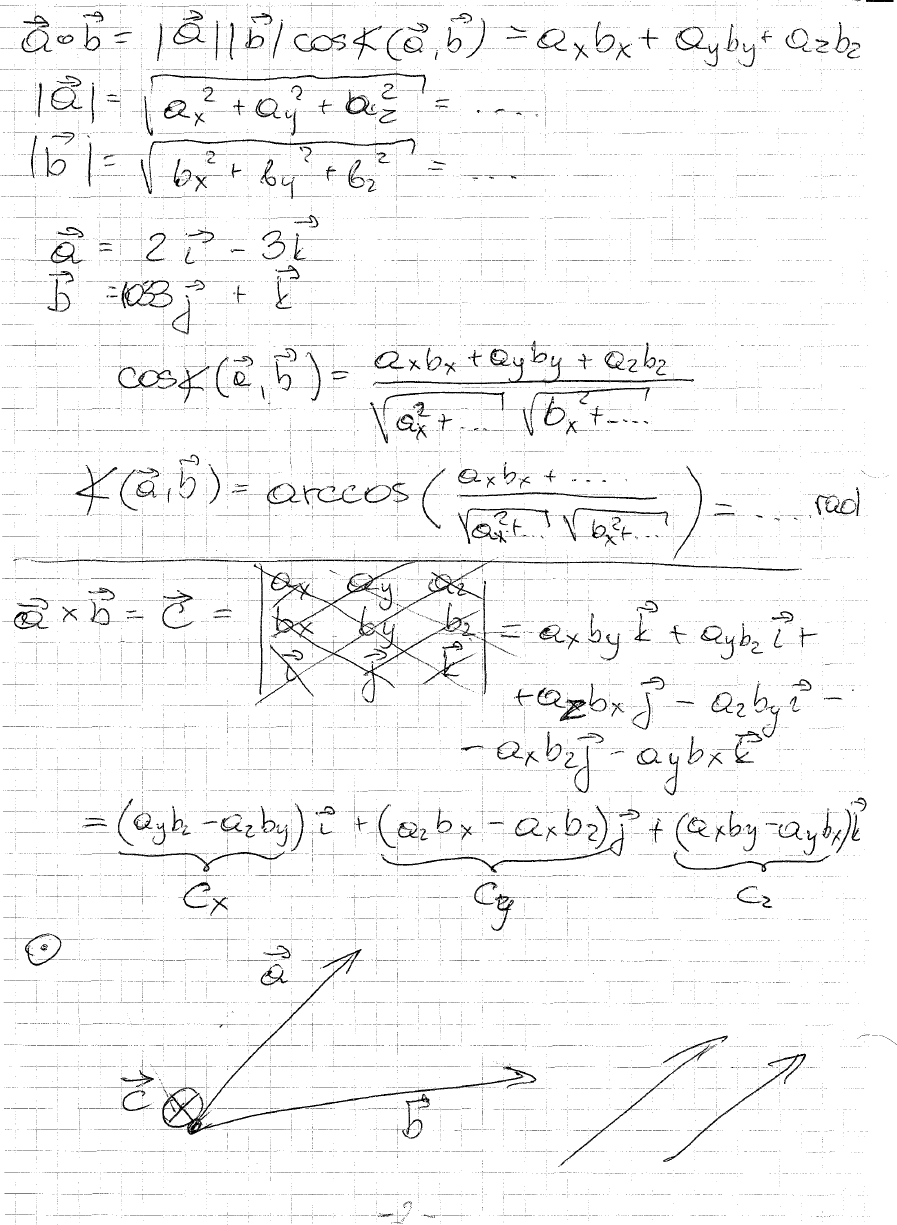 a⃗ ∘ b⃗ = |a⃗||b⃗| cos∢(a⃗,b⃗) = aₓbₓ + a_yb_y + a_zb_z
|a⃗| = √(aₓ² + a_y² + a_z²) = ....
|b⃗| = √(bₓ² + b_y² + b_z²) = ....
a⃗ = 2i⃗ - 3k⃗
b⃗ = j⃗ + k⃗
cos∢(a⃗,b⃗) = (aₓbₓ + a_yb_y + a_zb_z) / (√(aₓ² + ...) √(bₓ² + ....))
∢(a⃗,b⃗) = arccos((aₓbₓ + ....) / (√(aₓ² + ...) √(bₓ² + ...))) = .... rad
a⃗ × b⃗ = c⃗ = | aₓ a_y a_z |
| bₓ b_y b_z |
| i⃗ j⃗ k⃗ | = aₓb_y k⃗ + a_yb_z i⃗ +
+ a_zbₓ j⃗ - a_zb_y i⃗ -
- aₓb_z j⃗ - a_ybₓ k⃗
= (a_yb_z - a_zb_y) i⃗ + (a_zbₓ - aₓb_z) j⃗ + (aₓb_y - a_ybₓ) k⃗
cₓ c_y c_z
a⃗
c⃗
b⃗